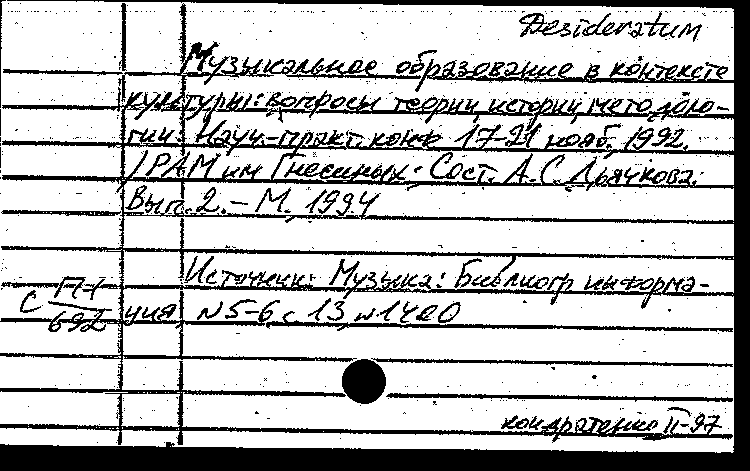 Desideratum
Музыкальное образование в контексте
культуры: вопросы теории, истории, методоло-
гии. Науч.-практ. конф. 17-21 нояб., 1992.
/РАМ им Гнесиных: Сост. А.С. Дьячкова.
Вып. 2. - М., 1994
Источник: Музыка: Библиогр информа-
ция, N5-6, с 13, N1400
С П-1
692
кондратенко II-97